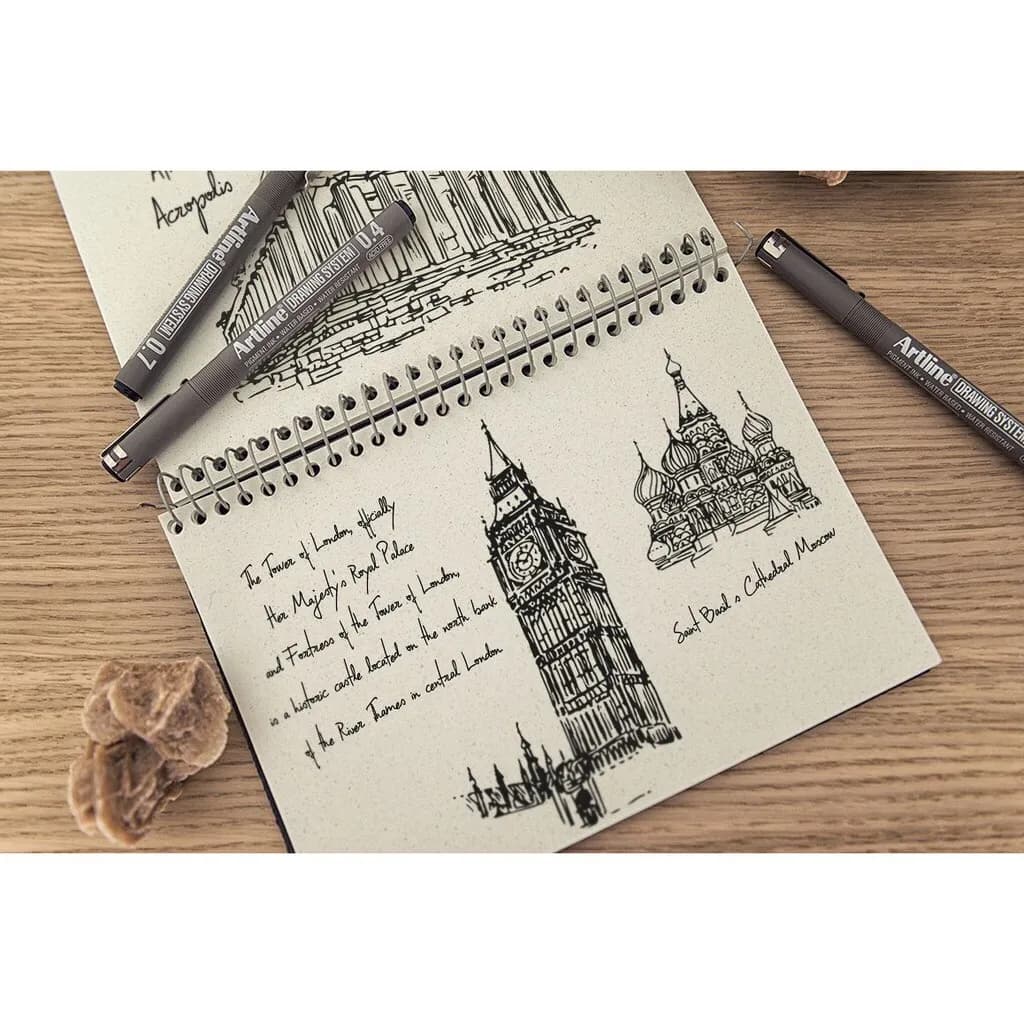 Acropolis
Artline DRAWING SYSTEM 0.7
Artline DRAWING SYSTEM 0.4
PIGMENT INK • WATER BASED • WATER RESISTANT
ACID FREE
Artline DRAWING SYSTEM
PIGMENT INK • WATER BASED • WATER RESISTANT
The Tower of London, officially
Her Majesty's Royal Palace
and Fortress of the Tower of London,
is a historic castle located on the north bank
of the River Thames in central London
Saint Basil s Cathedral Moscow